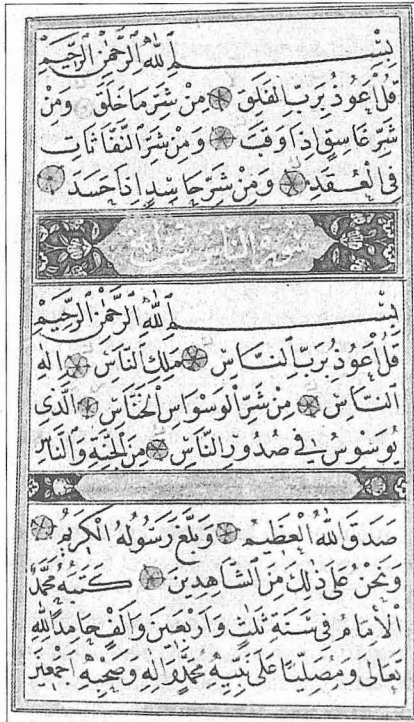 بِسْمِ اللهِ الرَّحْمٰنِ الرَّحِيمِ
قُلْ اَعُوذُ بِرَبِّ الْفَلَقِ مِنْ شَرِّ مَا خَلَقَ وَمِنْ
شَرِّ غَاسِقٍ اِذَا وَقَبَ وَمِنْ شَرِّ النَّفَّاثَاتِ
فِي الْعُقَدِ وَمِنْ شَرِّ حَاسِدٍ اِذَا حَسَدَ
سورة الناس ست ايات
بِسْمِ اللهِ الرَّحْمٰنِ الرَّحِيمِ
قُلْ اَعُوذُ بِرَبِّ النَّاسِ مَلِكِ النَّاسِ اِلٰهِ
النَّاسِ مِنْ شَرِّ الْوَسْوَاسِ الْخَنَّاسِ الَّذِي
يُوَسْوِسُ فِي صُدُورِ النَّاسِ مِنَ الْجِنَّةِ وَالنَّاسِ
صَدَقَ اللهُ الْعَظِيمُ وَبَلَّغَ رَسُولُهُ الْكَرِيمُ
وَنَحْنُ عَلَى ذٰلِكَ مِنَ الشَّاهِدِينَ كَتَبَهُ مُحَمَّدٌ
الْاِمَامُ فِي سَنَةِ ثَلٰثٍ وَاَرْبَعِينَ وَاَلْفٍ حَامِدًا لِلّٰهِ
تَعَالَى وَمُصَلِّيًا عَلَى نَبِيِّهِ مُحَمَّدٍ وَاٰلِهِ وَصَحْبِهِ اَجْمَعِينَ